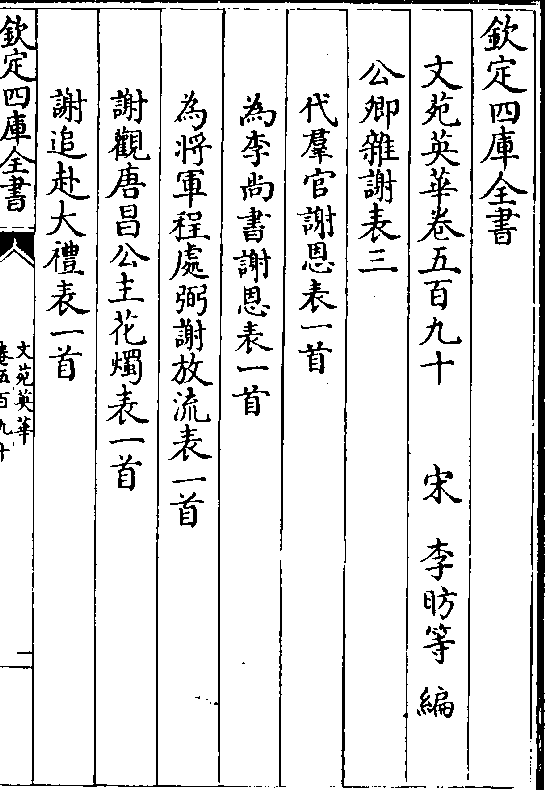 欽定四庫全書
文苑英華卷五百九十　宋　李昉等　編
公卿雜謝表三
代羣官謝恩表一首
為李尚書謝恩表一首
為將軍程處弼謝放流表一首
謝觀唐昌公主花燭表一首
謝追赴大禮表一首
欽定四庫全書
文苑英華
卷五百九十